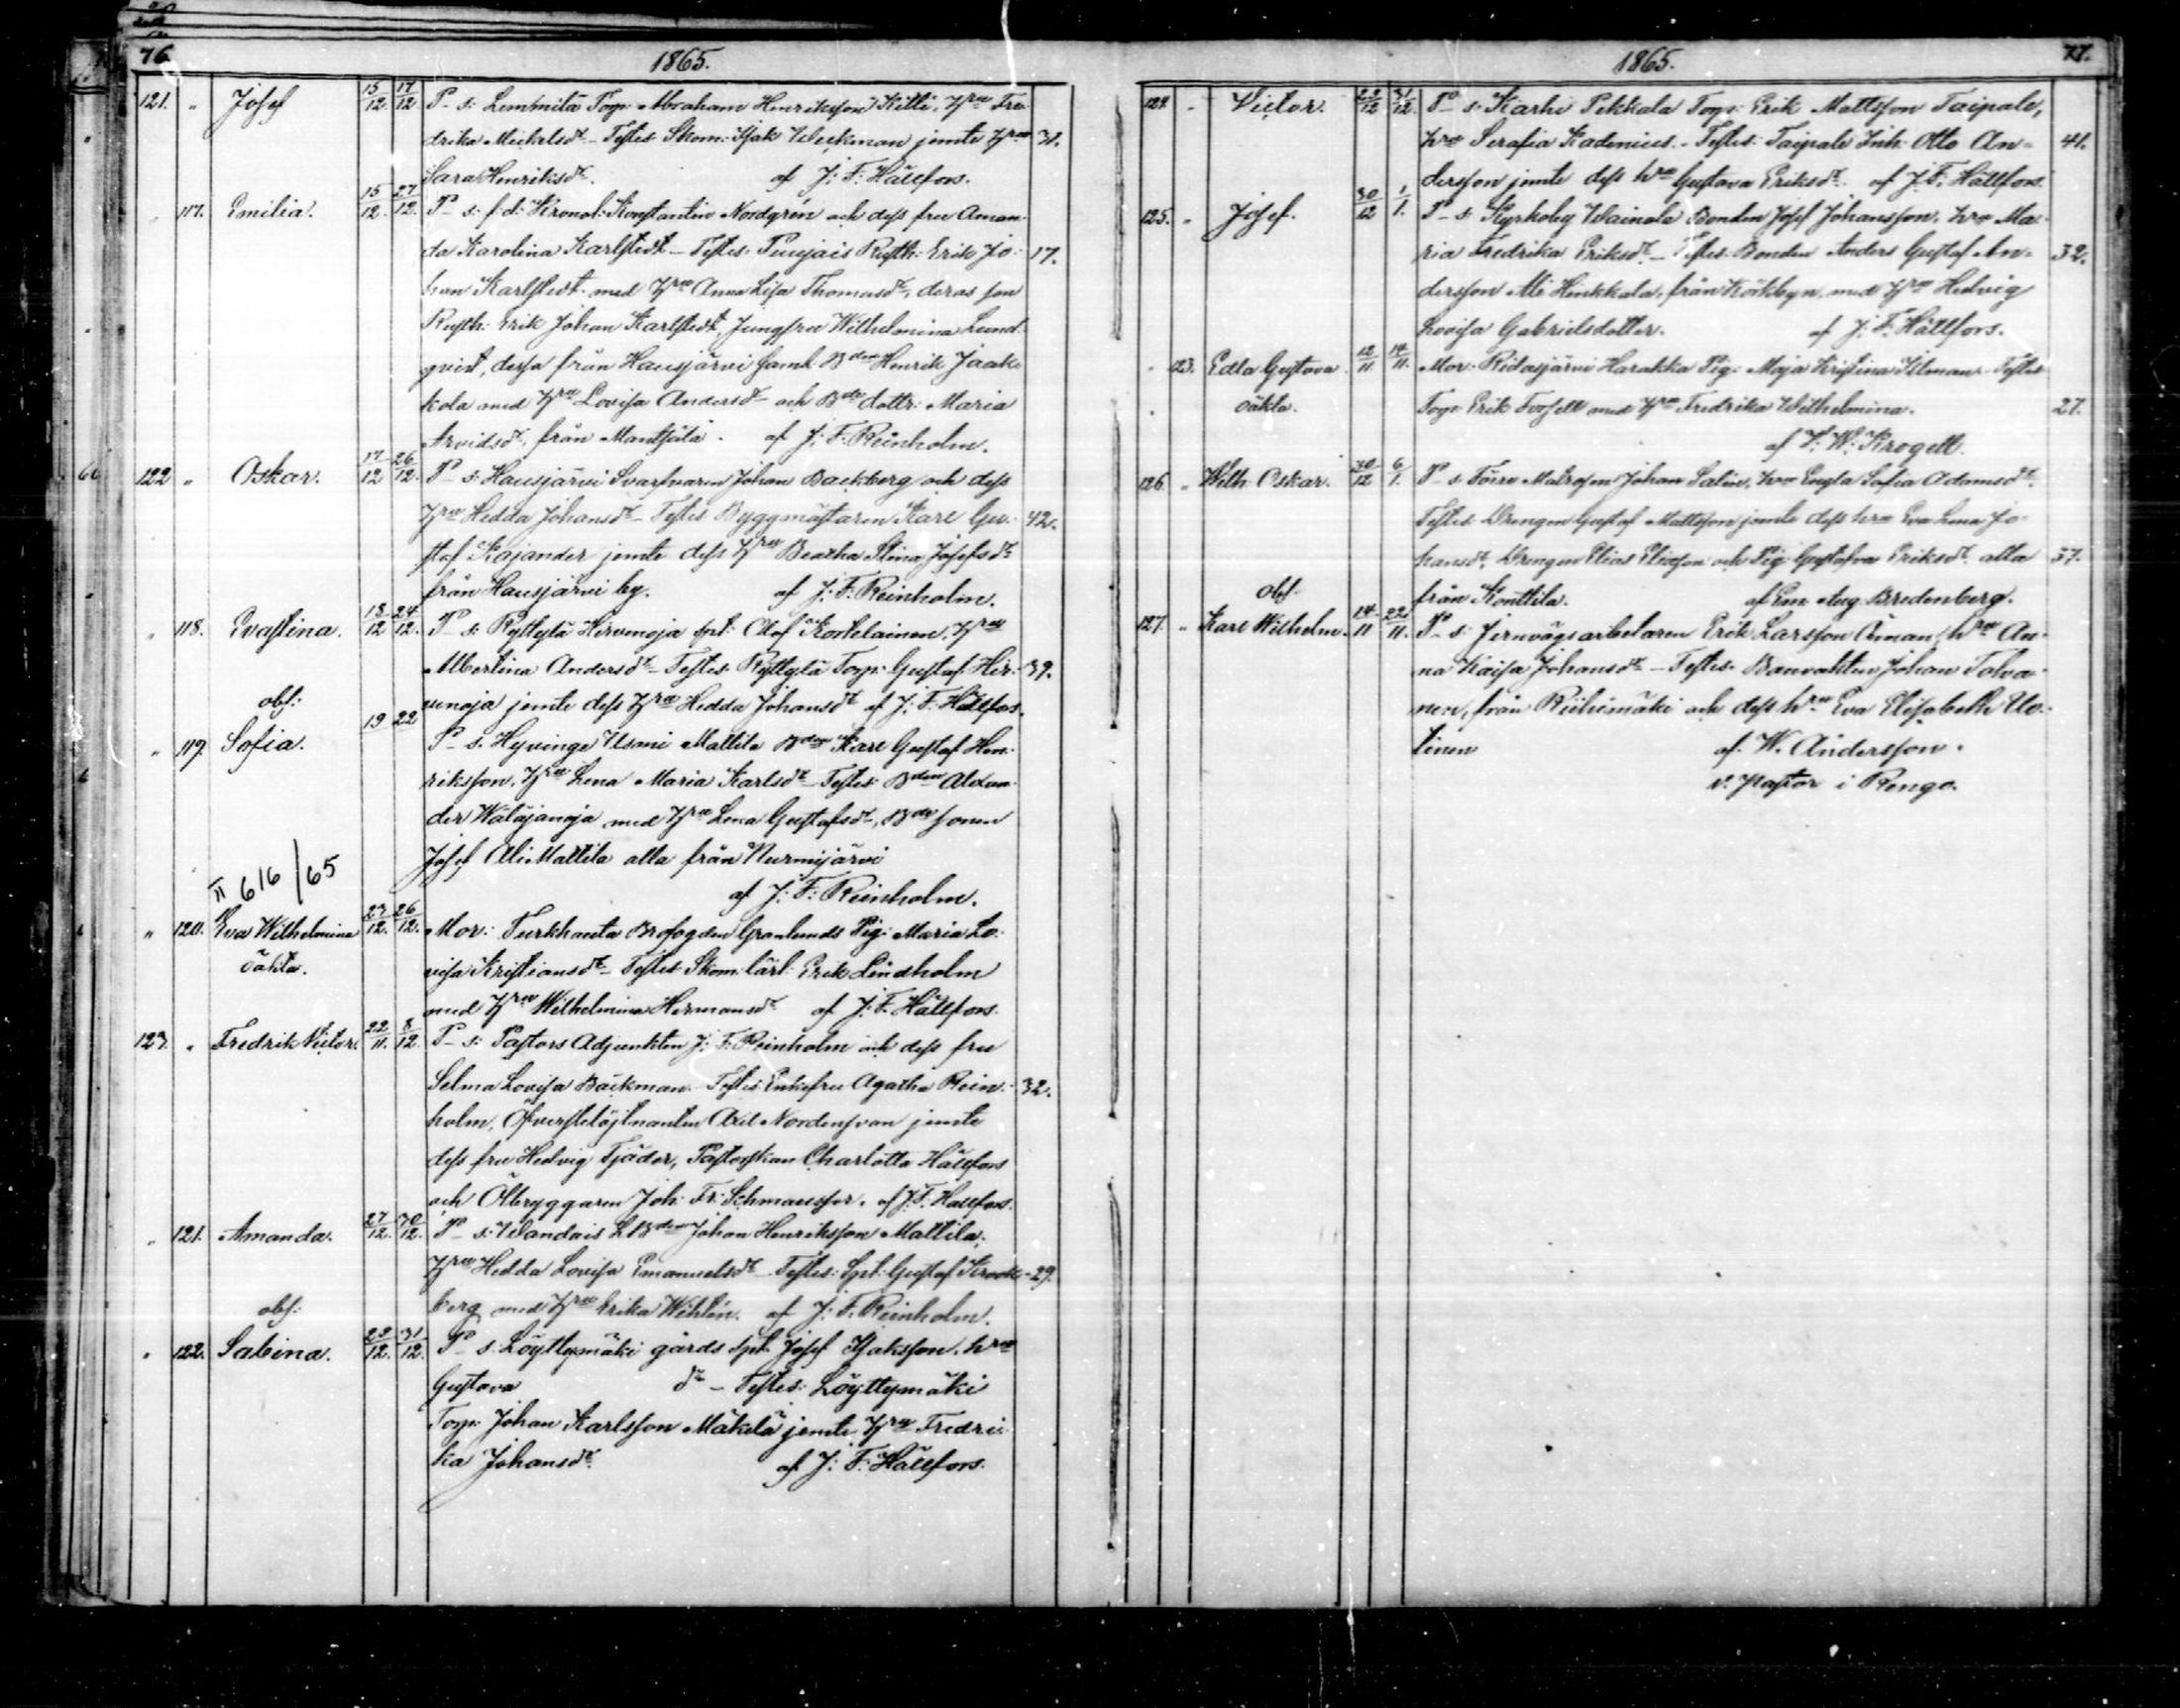 76. 1865.
121. " Josef 15/12 17/12 P- s: Lemmilä Torp: Abraham Henriksson Killi, Hru Fre-
drika Mickelsdt - Testes: Skom: Isak Weckman jemte Hru 31.
Sara Henriksdt. af J: F: Hällfors.
" 117. Emilia. 15/12 27/12 P- s: f.d. Kronol: Konstantin Nordgrén och dess fru Aman-
da Karolina Karlstedt - Testes: Rusth: Erik Jo- 17.
han Karlstedt med Hru Anna Lisa Thomasdt, deras son
Rusth: Erik Johan Karlstedt, Jungfru Wilhelmina Lund-
qvist, dessa från Hausjärvi samt Bden Henrik Jaak-
kola med Hru Lovisa Andersdt och Bde dottr: Maria
Arvidsdt, från Mäntsälä. af J: F: Reinholm.
122 " Oskar. 17/12 26/12 P- s: Hausjärvi Svarfvaren Johan Backberg och dess
Hru Hedda Johansdt - Testes Byggmästaren Karl Gu- 42.
staf Kajander jemte dess Hru Beatha Stina Josefsdt
från Hausjärvi by. af J: F: Reinholm.
" 118. Evastina. 18/12 24/12 P- s: Ryttylä Hirvenoja Spt: Olof Kostelainen, Hru
Albertina Andersdt - Testes: Ryttylä Torp: Gustaf Hir- 39.
obs: venoja jemte dess Hru Hedda Johansdt af J: F: Hällfors.
" 119. Sofia. 19 22 P- s. Hyvinge Usmi Mattila Bden Karl Gustaf Hen-
riksson, Hru Lena Maria Karlsdt - Testes: Bden Alexan-
der Wäläjänoja med Hru Lena Gustafsdt, Bde sonen
Josef Ali Mattila alla från Nurmijärvi
II 616/65 af J: F: Reinholm.
" 120. Eva Wilhelmina 23/12. 26/12. Mor: Turkhauta Brofogden Granlunds Pig: Maria Lo-
oäkta. visa Kristiansdt - Testes: Skom: lärl: Erik Lindholm
med Hru Wilhelmina Hermansdt af J: F: Hällfors.
123. " Fredrik Victor. 22/11. 8/12 P- s: Pastors Adjunkten J: F: Reinholm och dess fru
Selma Lovisa Bäckman. Testes: Enkefru Agatha Rein- 32.
holm, Öfverstelöjtnanten Axel Nordensvan jemte
dess fru Hedvig Tjäder, Pastorskan Charlotta Hällfors
och Ölbryggaren Joh: Fr: Schmausser. af J: F: Hällfors.
" 121. Amanda. 27/12. 30/12. P- s: Wandais LBden Johan Henriksson Mattila,
Hru Hedda Lovisa Emanuelsdt - Testes: Spt: Gustaf Krook- 29.
obs: berg med Hru Erika Wihlén. af J: F: Reinholm.
" 122. Sabina. 29/12. 31/12. P- s: Löyttymäki gårds Spt: Josef Isaksson, hru
Gustava dt - Testes: Löyttymäki
Torp: Johan Karlsson Mäkelä jemte Hru Fredri-
ka Johansdt. af J: F: Hällfors.
1865. 77.
124. " Victor. 22/12 31/12. P- s: Karhi Pekkala Torp: Erik Mattsson Taipale,
hru Serafia Kadenius. - Testes: Taipale Inh: Otto An- 41.
dersson jemte dess hru Gustava Eriksdt. af J: F: Hällfors.
125. " Josef. 30/12 1/1. P- s: Kyrkoby Wainala Bonden Josef Johansson, hru Ma-
ria Fredrika Eriksdt. - Testes: Bonden Anders Gustaf An- 32.
dersson Ali Hinkkala, från Kärkbyn, med Hru Hedvig
Lovisa Gabrielsdotter. af J: F: Hällfors.
" 123. Edla Gustava 12/11 14/11. Mor: Ridasjärvi Harakka Pig: Maja Kristina Ilman - Testes
oäkta. Torp: Erik Forsell med Hru Fredrika Wilhelmina. 27.
af F: W: Krogell.
126. " Wilh: Oskar. 30/12 6/1. P- s: Torrv Matrosen Johan Salin, hru Engla Sofia Adamsdt.
Testes: Drengen Gustaf Mattsson jemte dess hru Eva Lena Jo-
hansdt, Drengen Elias Eliasson och Pig: Gustafva Eriksdt. alla 37.
obs: från Konttila. af Em. Aug. Bredenberg.
127. " Karl Wilhelm. 14/11 22/11. P- s: Jernvägsarbetaren Erik Larsson Åman, hru An-
na Kaisa Johansdt - Testes: Banvakten Johan Tolva-
nen, från Riihimäki och dess hru Eva Elisabeth Uo-
tinen af. W. Andersson.
v. Pastor i Rengo.